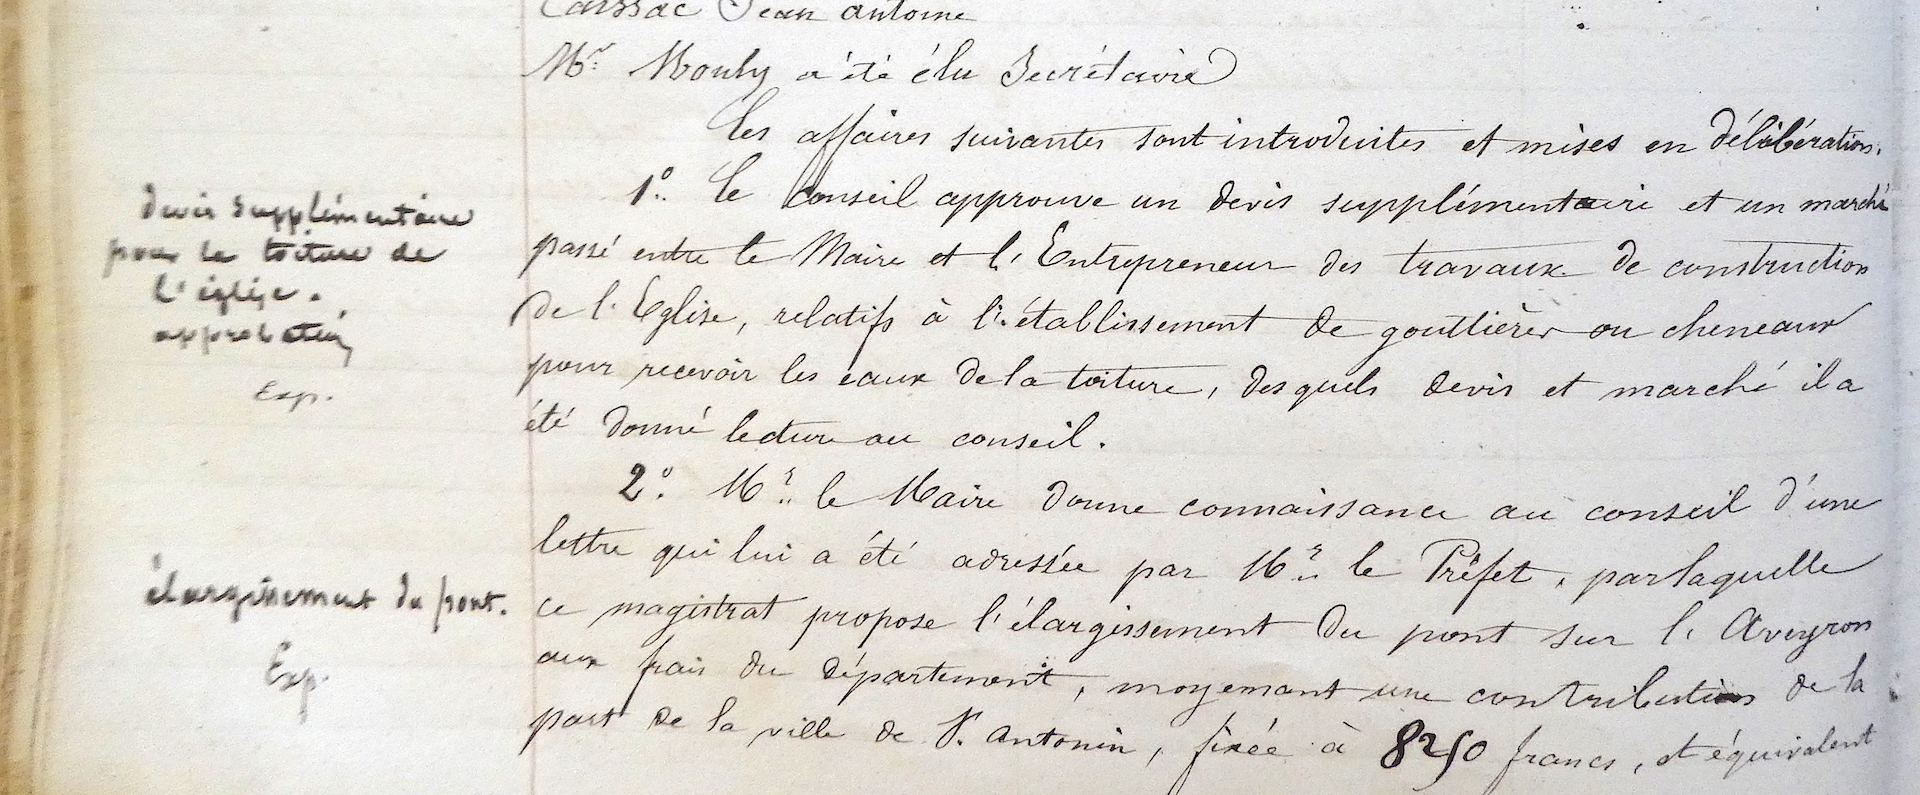 Caissac Jean Antoine
Mr. Mouly a été élu Secrétaire
Les affaires suivantes sont introduites et mises en délibération.
1º. Le Conseil approuve un devis supplémentaire et un marché
passé entre le Maire et l'Entrepreneur des travaux de construction
de l'Eglise, relatifs à l'établissement de gouttières ou cheneaux
pour recevoir les eaux de la toiture, desquels devis et marché il a
été donné lecture au conseil.
2º. Mr. le Maire donne connaissance au conseil d'une
lettre qui lui a été adressée par Mr. le Préfet, par laquelle
ce magistrat propose l'élargissement du pont sur l'Aveyron
aux frais du département, moyennant une contribution de la
part de la ville de St. Antonin, fixée à 8250 francs, et équivalent
devis supplémentaire
pour la toiture de
l'église.
approbation
Exp.
élargissement du pont.
Exp.